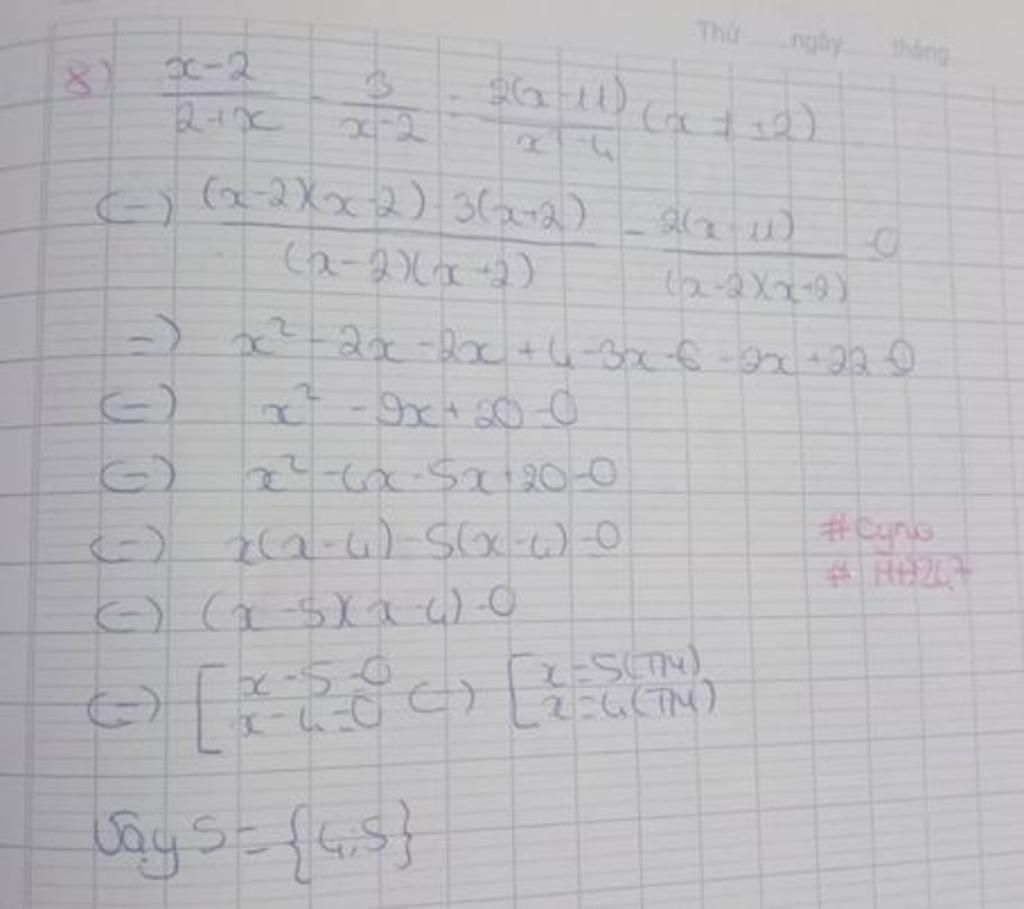 Thứ ngày tháng
8) \frac{x-2}{2+x} - \frac{3}{x-2} = \frac{2(x-11)}{x^2-4} (x ≠ ±2)
(=) \frac{(x-2)(x-2)-3(x+2)}{(x-2)(x+2)} - \frac{2(x-11)}{(x-2)(x+2)} = 0
=) x² - 2x - 2x + 4 - 3x - 6 - 2x + 22 = 0
(=) x² - 9x + 20 = 0
(=) x² - 4x - 5x + 20 = 0
(=) x(x-4) - 5(x-4) = 0
(=) (x-5)(x-4) = 0
(=) [ x-5=0 (=) [ x=5(TM)
x-4=0 x=4(TM)
Vậy S = {4,5}
#Cyrus
# HH247